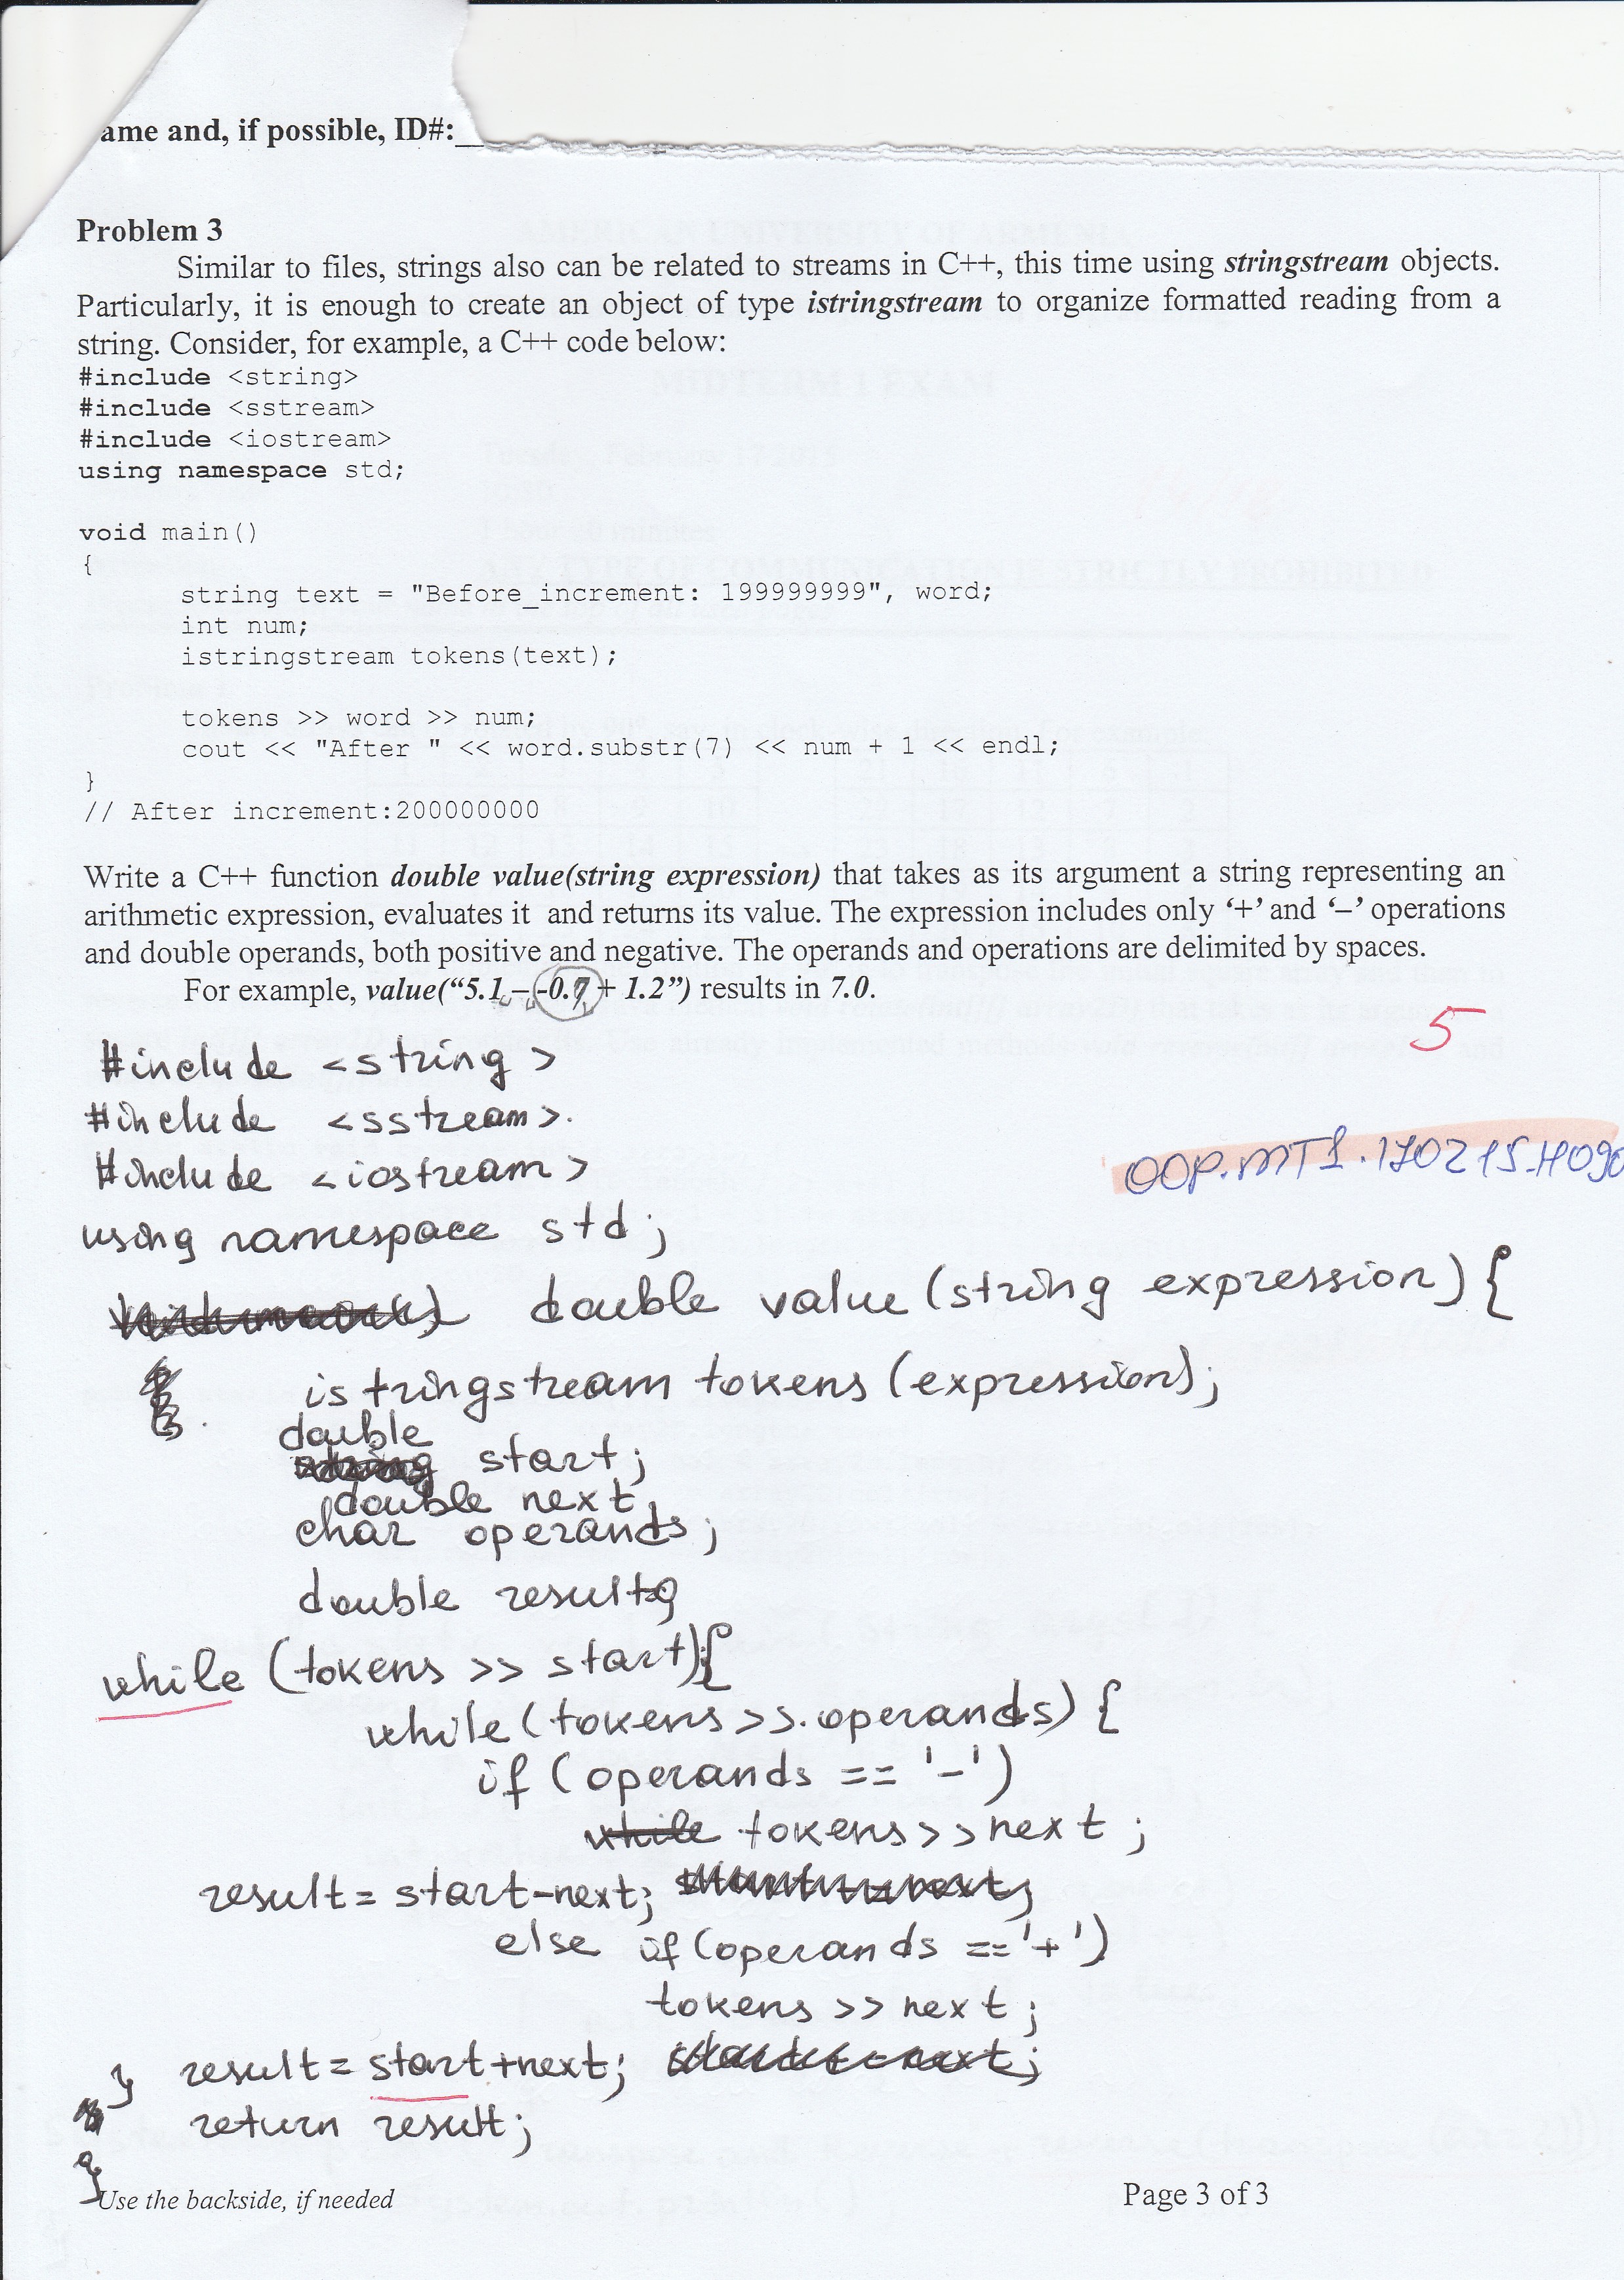 ame and, if possible, ID#:__
Problem 3
Similar to files, strings also can be related to streams in C++, this time using stringstream objects.
Particularly, it is enough to create an object of type istringstream to organize formatted reading from a
string. Consider, for example, a C++ code below:
#include <string>
#include <sstream>
#include <iostream>
using namespace std;
void main()
{
string text = "Before_increment: 199999999", word;
int num;
istringstream tokens(text);
tokens >> word >> num;
cout << "After " << word.substr(7) << num + 1 << endl;
}
// After increment:200000000
Write a C++ function double value(string expression) that takes as its argument a string representing an
arithmetic expression, evaluates it and returns its value. The expression includes only ‘+’ and ‘–’ operations
and double operands, both positive and negative. The operands and operations are delimited by spaces.
For example, value(“5.1 – -0.7 + 1.2”) results in 7.0.
5
#include <string>
#include <sstream>.
#include <iostream>
OOP.MT1.170215.H090
using namespace std;
double value (string expression) {
istringstream tokens (expression);
double
start;
double next,
char operands;
double result;
while (tokens >> start){
while (tokens >> operands) {
if (operands == '-')
while tokens >> next ;
result = start-next;
else if (operands == '+')
tokens >> next ;
} result = start+next;
return result;
}
Use the backside, if needed
Page 3 of 3